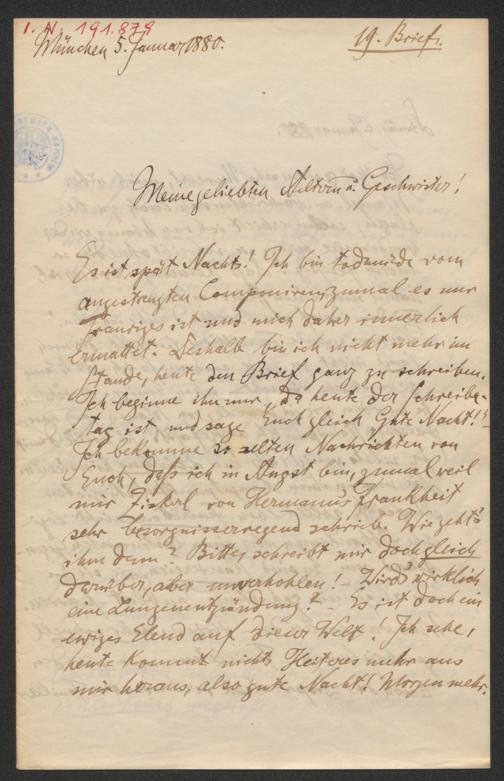 I. N. 191.879
München 5. Januar 1880.
19. Brief.
Meine geliebten Aeltern u. Geschwister!
Es ist spät Nachts! Ich bin todmüde vom
angestrengten Componiren, zumal es nur
Trauriges ist und mich daher innerlich
ermattet. Deshalb bin ich nicht mehr im
Stande, heute den Brief ganz zu schreiben.
Ich beginne ihn nur, da heute der Schreibe-
tag ist und sage Euch gleich Gute Nacht!
Ich bekomme so selten Nachrichten von
Euch, daß ich in Angst bin, zumal weil
mir Zickerl von Hermanns Krankheit
sehr besorgnisserregend schrieb. Wie geht's
ihm denn? Bitte, schreibt mir doch gleich
darüber, aber unverhohlen! Wird's wirklich
eine Lungenentzündung? - Es ist doch ein
ewiges Elend auf dieser Welt! Ich sehe,
heute kommt nichts Heiteres mehr aus
mir heraus, also gute Nacht! Morgen mehr.